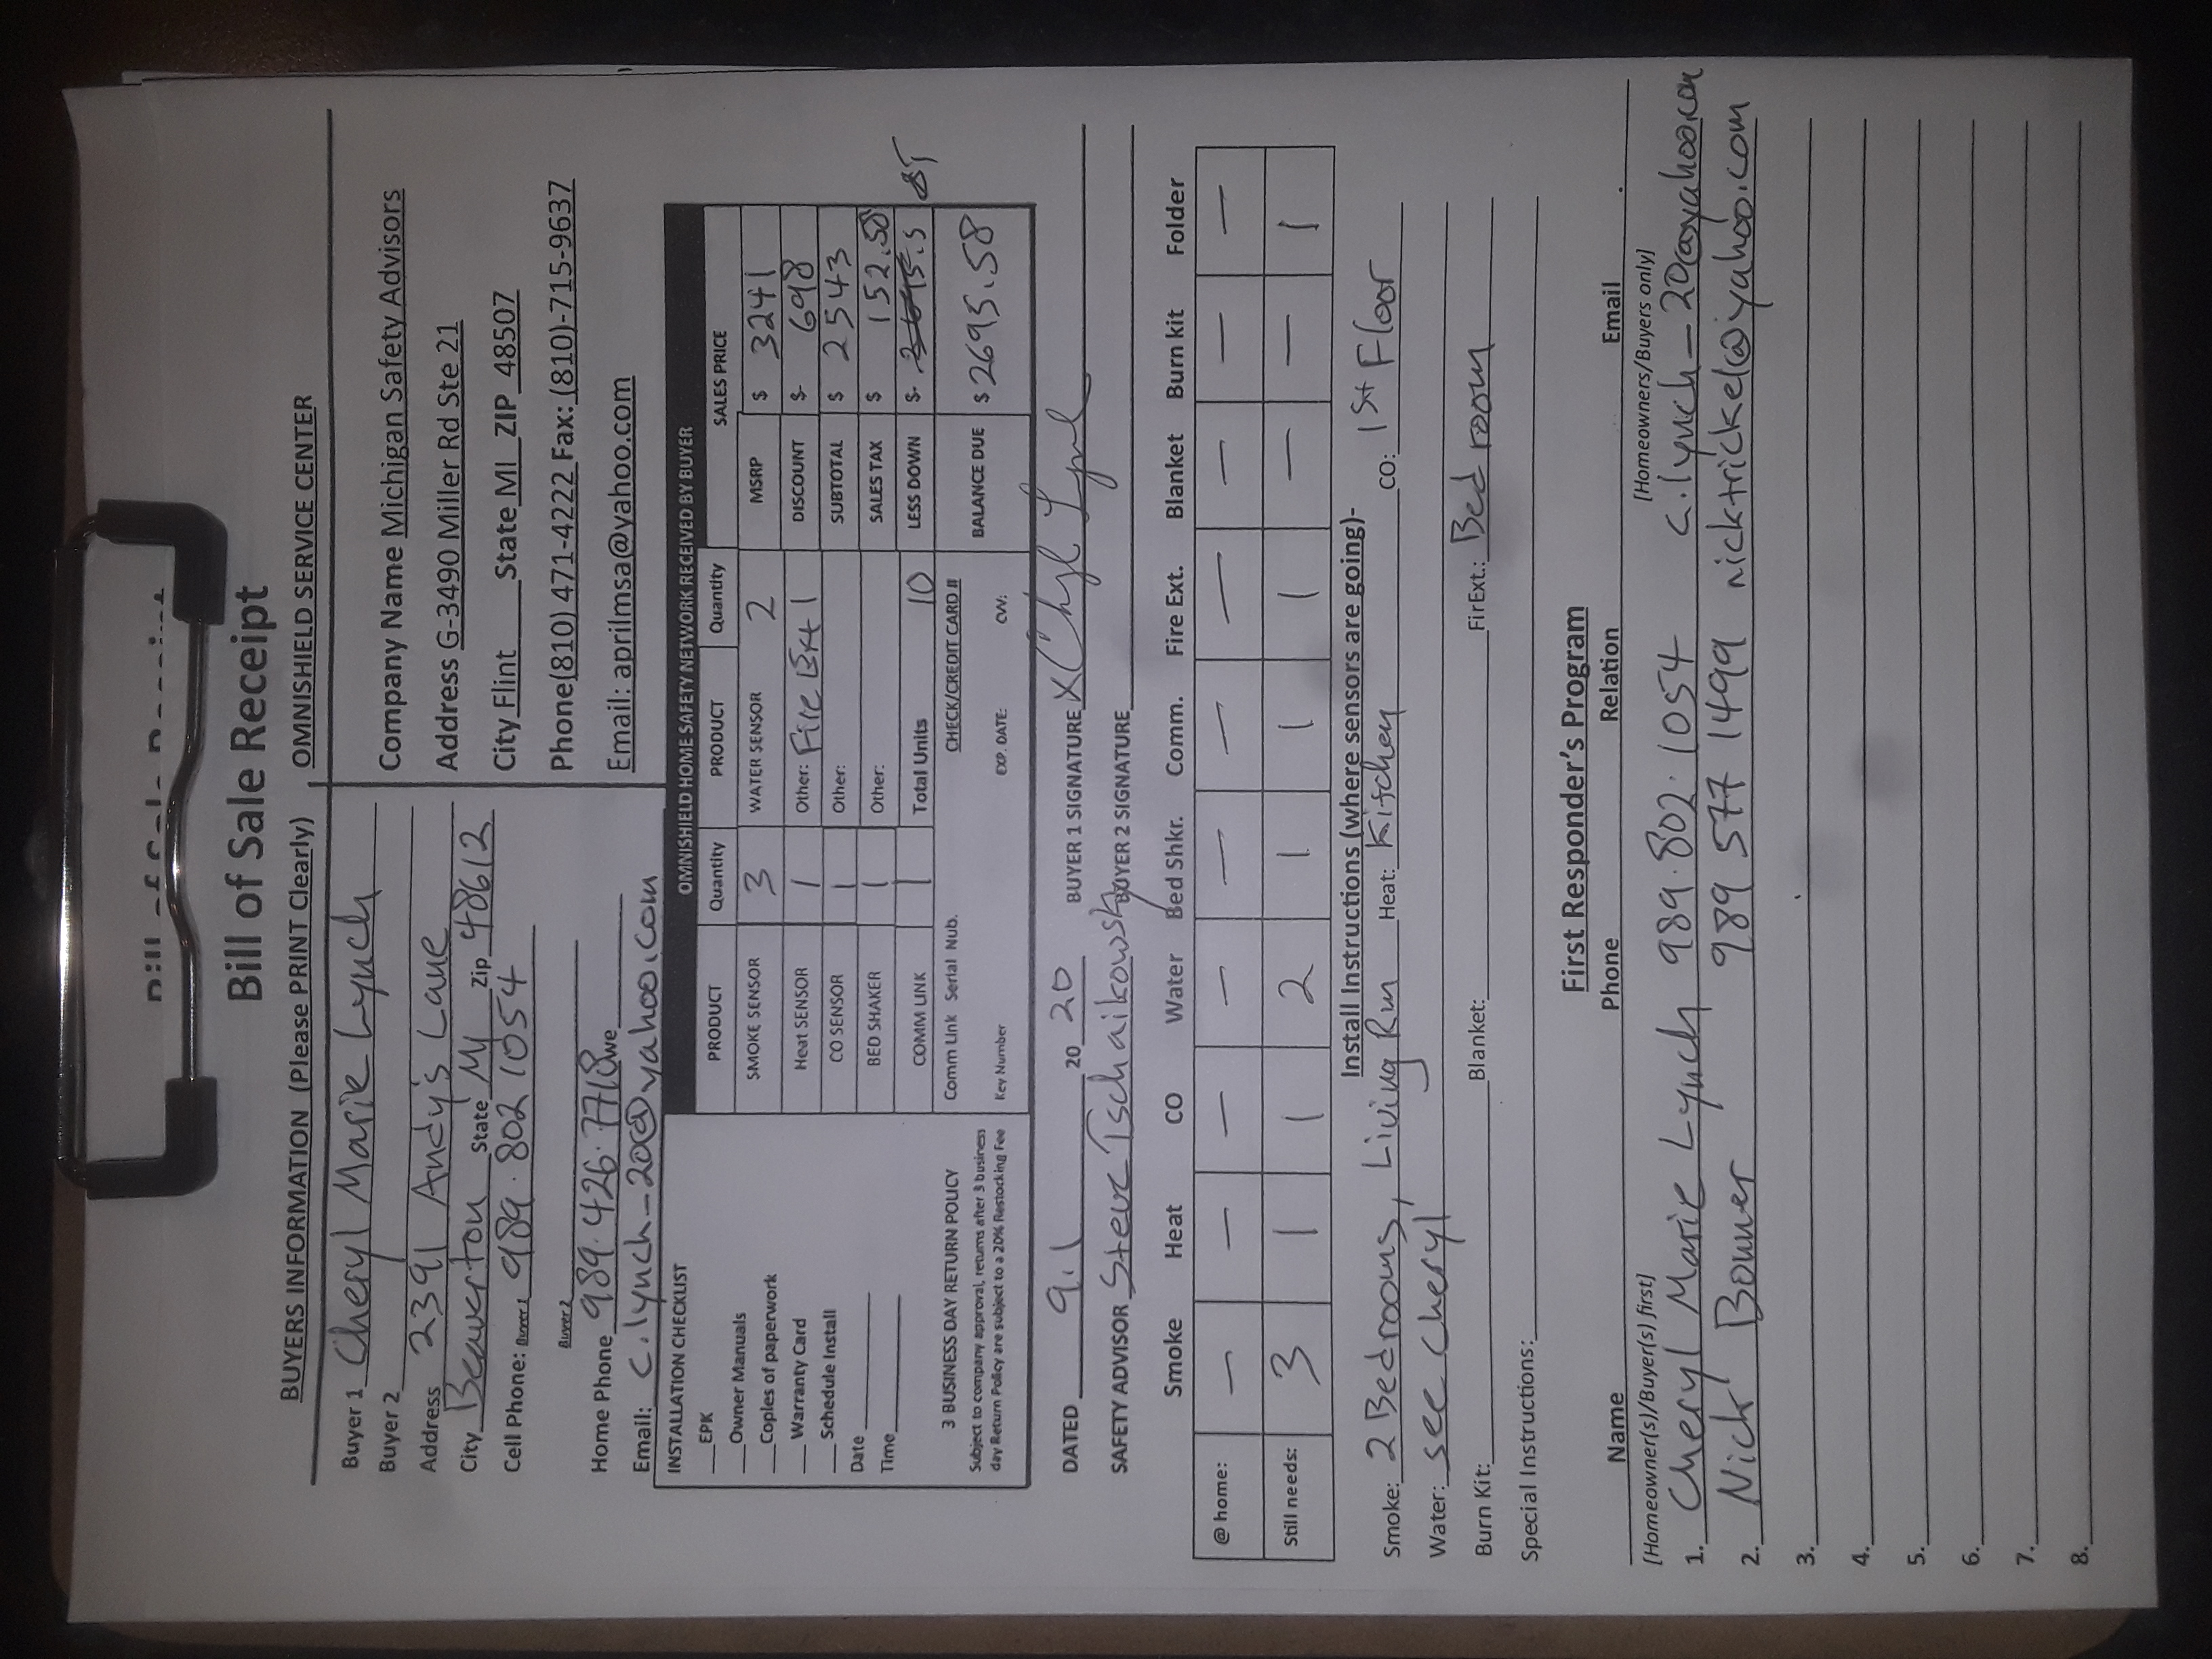 Bill of Sale Receipt
BUYERS INFORMATION (Please PRINT Clearly)
Buyer 1 Cheryl Marie Lynch
Buyer 2
Address 2391 Andy's Lane
City Beaverton State MI Zip 48612
Cell Phone: Buyer 1 989.802 1054
Buyer 2
Home Phone 989.426.7718
Email: c.lynch-20@yahoo.com
OMNISHIELD SERVICE CENTER
Company Name Michigan Safety Advisors
Address G-3490 Miller Rd Ste 21
City Flint State MI ZIP 48507
Phone(810) 471-4222 Fax: (810)-715-9637
Email: aprilmsa@yahoo.com
INSTALLATION CHECKLIST
EPK
Owner Manuals
Copies of paperwork
Warranty Card
Schedule Install
Date
Time
3 BUSINESS DAY RETURN POLICY
Subject to company approval, returns after 3 business
day Return Policy are subject to a 20% Restocking Fee
OMNISHIELD HOME SAFETY NETWORK RECEIVED BY BUYER
PRODUCT Quantity PRODUCT Quantity SALES PRICE
SMOKE SENSOR 3 WATER SENSOR 2 MSRP $ 3241
Heat SENSOR 1 Other: Fire Ext 1 DISCOUNT $- 698
CO SENSOR 1 Other: SUBTOTAL $ 2543
BED SHAKER 1 Other: SALES TAX $ 152.58
COMM LINK 1 Total Units 10 LESS DOWN $-
Comm Link Serial Nub. CHECK/CREDIT CARD #
Key Number EXP. DATE: CVV: BALANCE DUE $ 2695.58
DATED 9.1 20 20 BUYER 1 SIGNATURE X Chyl Lynch
SAFETY ADVISOR Steve Tschaikowsky BUYER 2 SIGNATURE
Smoke Heat CO Water Bed Shkr. Comm. Fire Ext. Blanket Burn kit Folder
@ home: — — — — — — — — — —
Still needs: 3 1 1 2 1 1 1 — — 1
Install Instructions (where sensors are going)-
Smoke: 2 Bedrooms, Living Rm Heat: Kitchen CO: 1st Floor
Water: see Cheryl
Burn Kit: Blanket: FirExt.: Bedroom
Special Instructions:
First Responder's Program
Name Phone Relation Email
[Homeowner(s)/Buyer(s) first] [Homeowners/Buyers only]
1. Cheryl Marie Lynch 989.802.1054 c.lynch-20@yahoo.com
2. Nick Bowner 989 577 1499 nicktrickel@yahoo.com
3.
4.
5.
6.
7.
8.